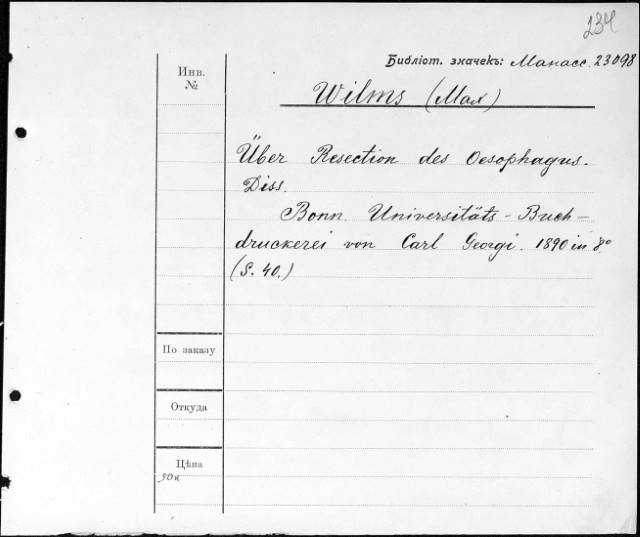 234
Библіот. значекъ: Манасс. 23098
Инв.
№
Wilms (Max)
Über Resection des Oesophagus.
Diss.
Bonn. Universitäts-Buch-
druckerei von Carl Georgi. 1890 in 8°
(S. 40.)
По заказу
Откуда
Цѣна
50к